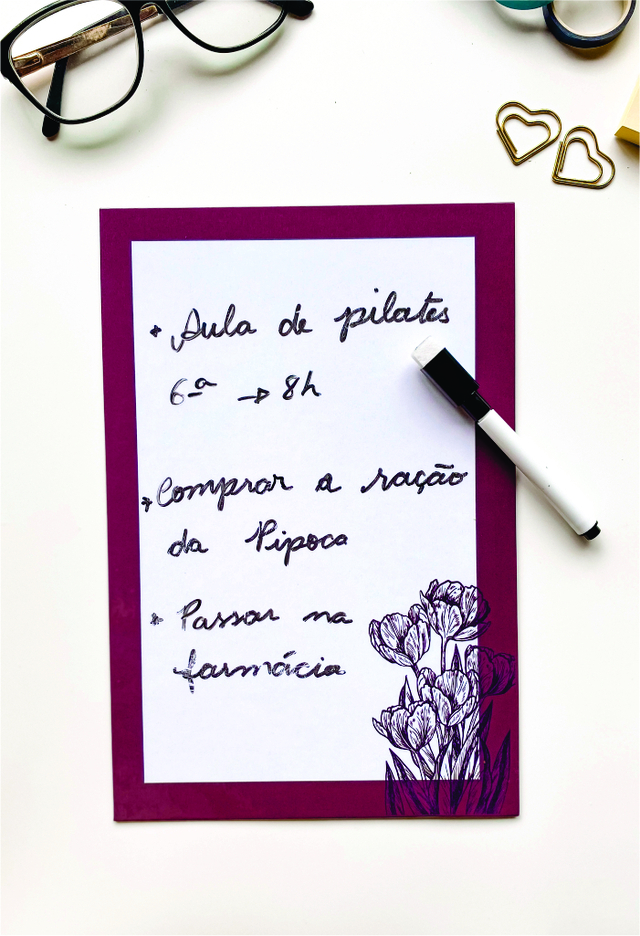 * Aula de pilates
6ª → 8h
* Comprar a ração
da Pipoca
* Passar na
farmácia